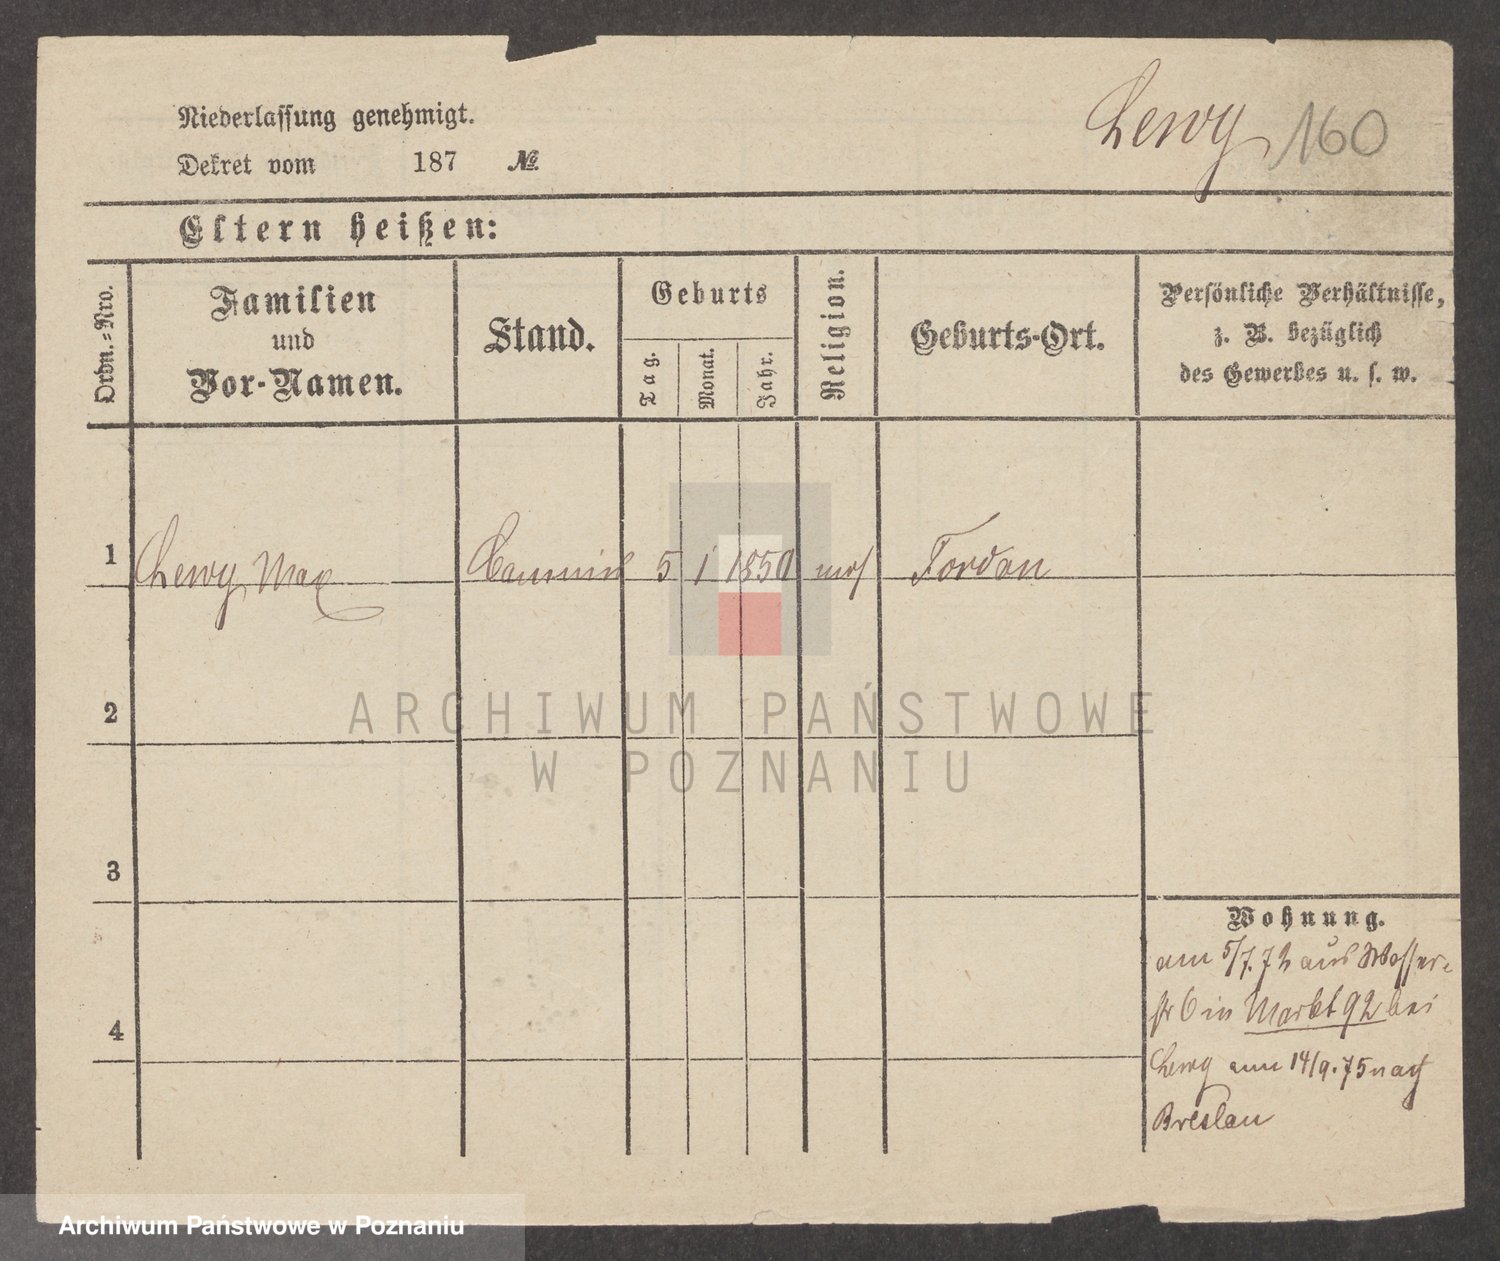 Lewy 160
Niederlassung genehmigt.
Dekret vom 187 №
Eltern heißen:
Ordn.-Nro.
Familien
und
Vor-Namen.
Stand.
Geburts
Tag.
Monat.
Jahr.
Religion.
Geburts-Ort.
Persönliche Verhältnisse,
z. B. bezüglich
des Gewerbes u. s. w.
1 Lewy Max Commis 5 1 1850 mos Fordon
2
3
4
Wohnung.
am 5/7.72 aus Wasser-
str 6 in Markt 92 bei
Lewy am 14/9.75 nach
Breslau
ARCHIWUM PAŃSTWOWE
W POZNANIU
Archiwum Państwowe w Poznaniu